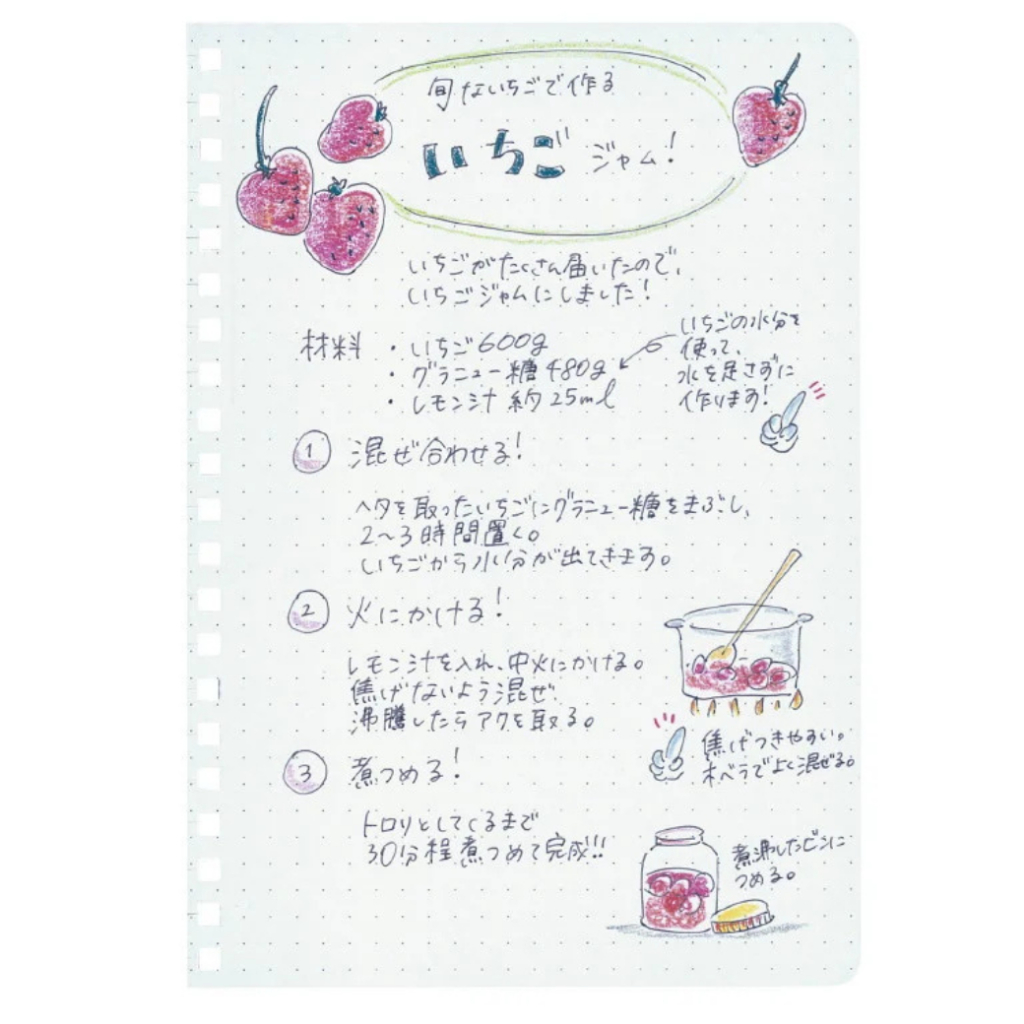 旬ないちごで作る
いちごジャム!
いちごがたくさん届いたので、
いちごジャムにしました!
材料 ・いちご600g
・グラニュー糖480g
・レモン汁 約25ml
いちごの水分を
使って、
水を足さずに
作ります!
1 混ぜ合わせる!
ヘタを取ったいちごにグラニュー糖をまぶし、
2〜3時間置く。
いちごから水分が出てきます。
2 火にかける!
レモン汁を入れ、中火にかける。
焦げないよう混ぜ
沸騰したらアクを取る。
焦げつきやすい。
木ベラでよく混ぜる。
3 煮つめる!
トロリとしてくるまで
30分程煮つめて完成!!
煮沸したビンに
つめる。